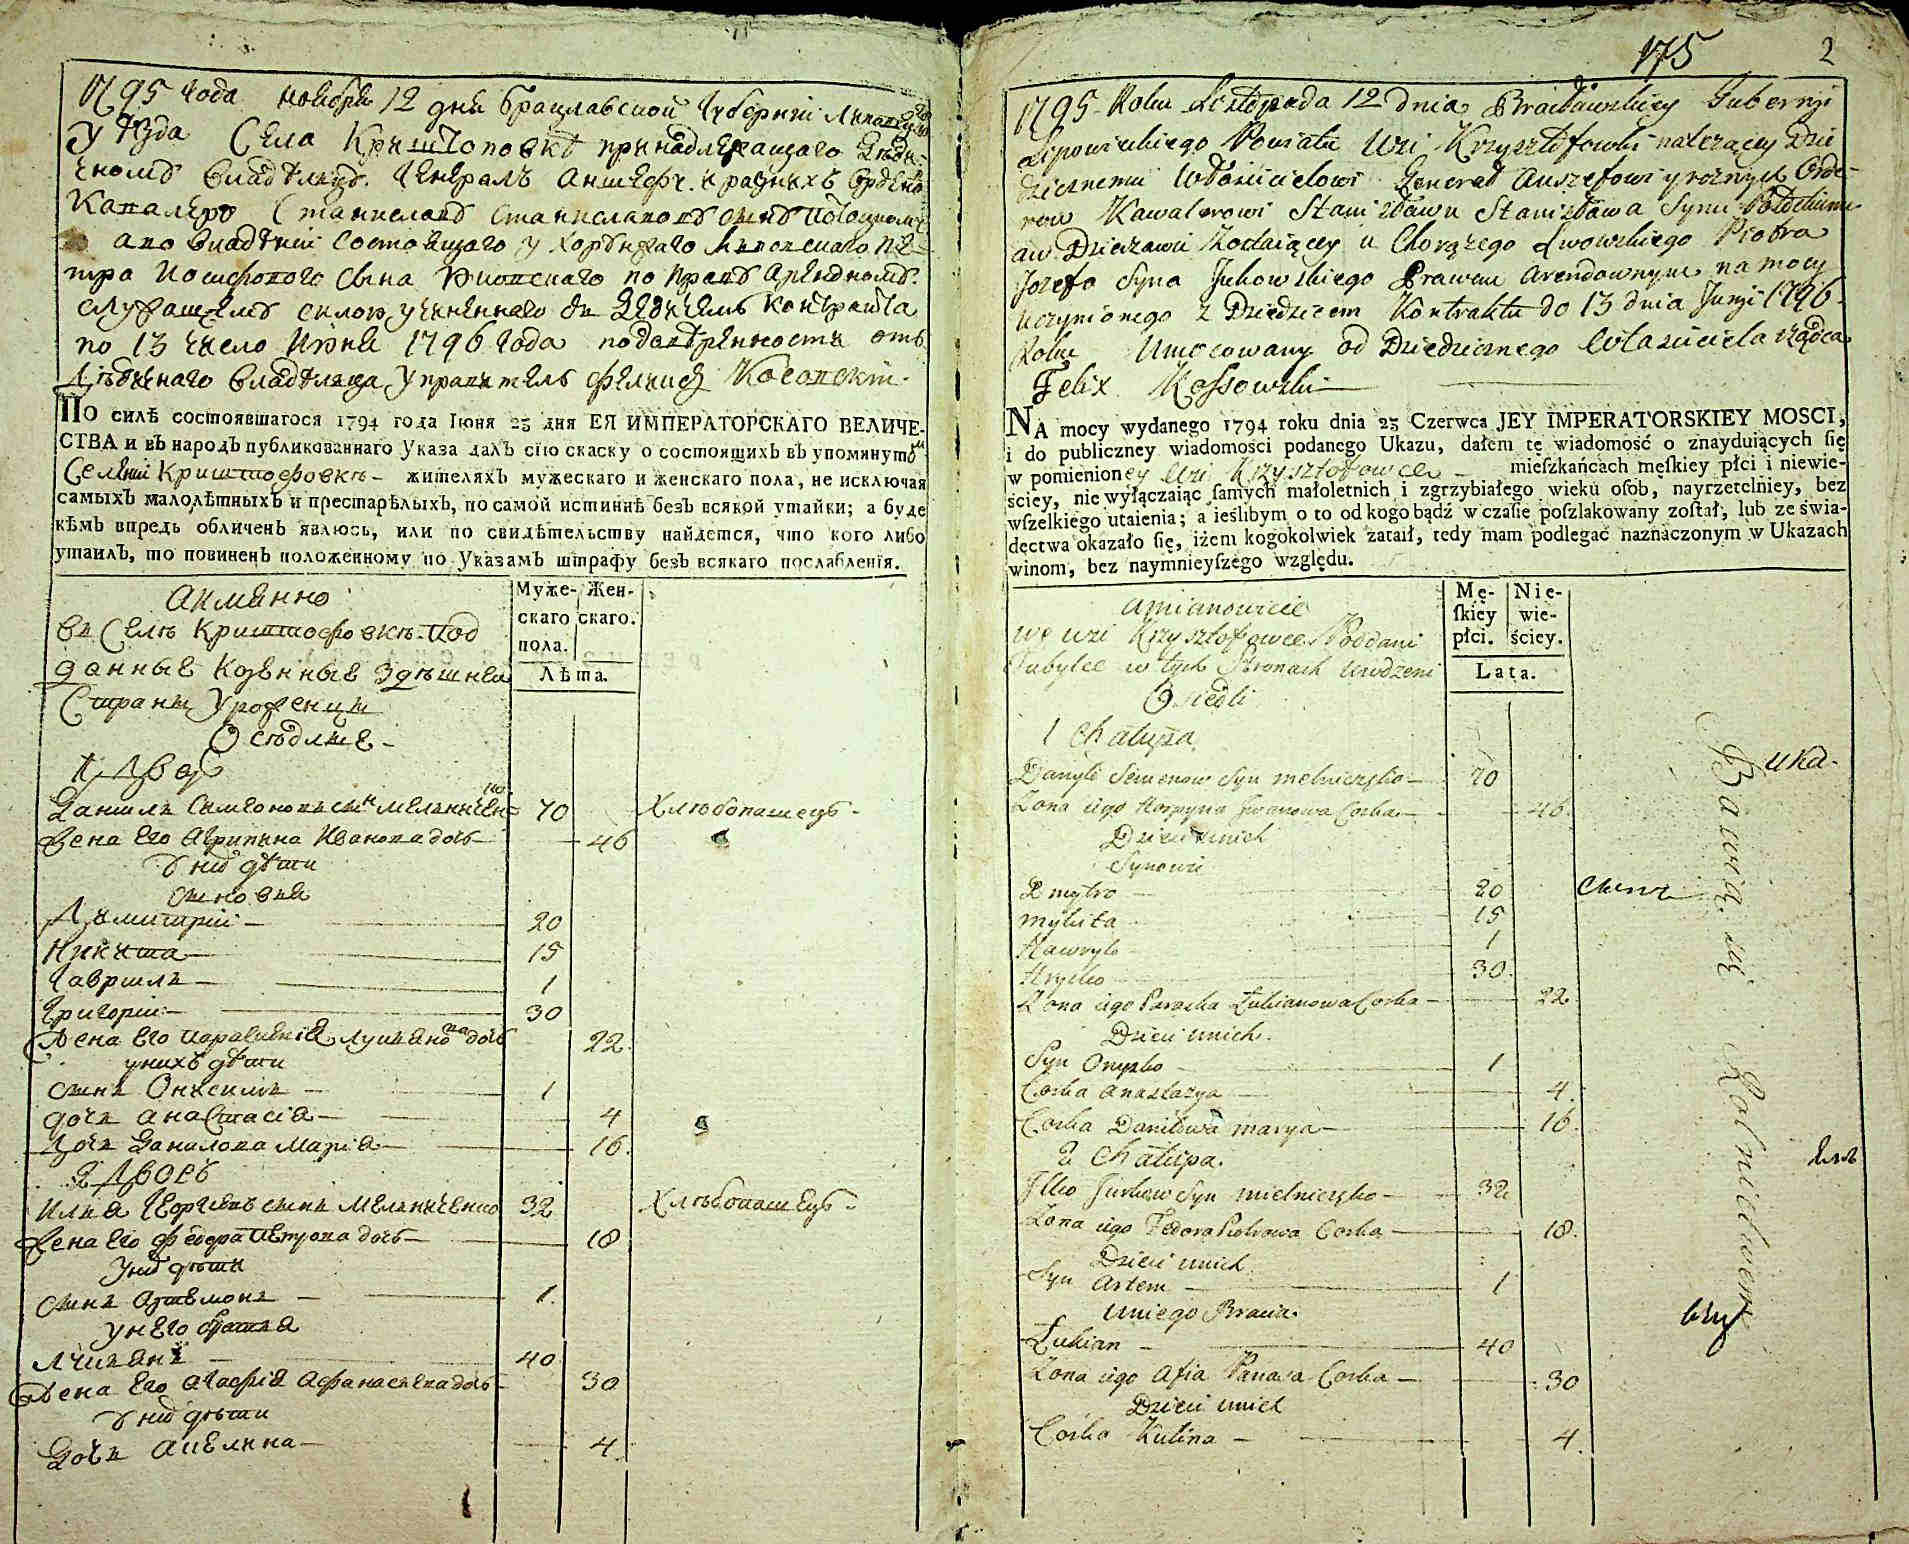 1795 года ноября 12 дня Брацлавской Губерніи Липовецкаго
уѣзда Села Криштоповкѣ принадлежащаго Дѣди-
чномъ владѣлцѣ Генералъ Аншефу и разныхъ
Кавалеро Станиславъ Станиславовъ
во владѣніи состоящаго у Хорунжаго
тра Иосифового сына по правъ Арендномъ
силою учиненнаго Контракта
по 13 число Июня 1796 года отъ
Дѣдичнаго владѣлца управитель Феликсъ Косовскій
ПО силѣ состоявшагося 1794 года Іюня 23 дня ЕЯ ИМПЕРАТОРСКАГО ВЕЛИЧЕ-
СТВА и въ народъ публикованнаго Указа далъ сію скаску о состоящихъ въ упомянутомъ
Селеніи Криштофовкѣ - жителяхъ мужескаго и женскаго пола, не исключая
самыхъ малолѣтныхъ и престарѣлыхъ, по самой истиннѣ безъ всякой утайки; а буде
кѣмъ впредь обличенъ явлюсь, или по свидѣтельству найдется, что кого либо
утаилъ, то повиненъ положенному по Указамъ штрафу безъ всякаго послабленія.
Муже- Жен-
скаго скаго.
пола.
Лѣта.
Аименно
въ Селѣ Криштофовкѣ под
данные Козенные здѣшнея
Страны Уроженцы
Осѣдлые -
1 Двор
Данило Семеоновъ сынъ Мелниченко 70 Хлѣбопашецъ -
Жена Его Агрипина Иванова дочь 46
У них дѣти
сыновья
Димитрій - 20
Никита 15
Гаврило 1
Григорій 30
Жена Его Параскевія Лукянова дочь 22
у нихъ дѣти
сынъ Онисимъ 1
дочь Анастасіа 4
Дочь Данилова Маріа 16
2 Дворъ
Илиа Георгіевъ сынъ Мелниченко 32 Хлѣбопашецъ -
Жена Его Федора Петрова дочь 18
У них дѣти
сынъ Артемонъ 1
у него братиа
Лукианъ 40
Жена Его Агафіа Афанасиева дочь 30
У них дѣти
Дочь Акелина 4
175 2
1795 Roku Listopada 12 dnia Bracławskiey Gubernyi
Lipowieckiego Powiatu Wsi Krzysztofowki należącey Dzie
dzicznemu Włascicielowi Generał Anszefowi y roznych Orde-
row Kawalerowi Stanisławu Stanisława Synu Potockiemu
aw Dzierzawie zostaiącey u Chorążego Lwowskiego Piotra
Jozefa Syna Jukowskiego Prawem Arendownym na mocy
uczynionego z Dziedzicem Kontraktu do 13 dnia Junyi 1796
Roku Umocowany od Dziedzicznego Własciciela rządca
Felix Kossowski
NA mocy wydanego 1794 roku dnia 23 Czerwca JEY IMPERATORSKIEY MOSCI,
i do publiczney wiadomości podanego Ukazu, dałem tę wiadomość o znayduiących się
w pomienioney Wsi Krzysztofowce - mieſzkańcach męſkiey płci i niewie-
ściey, nie wyłączaiąc ſamych małoletnich i zgrzybiałego wieku oſob, nayrzetelniey, bez
wſzelkiego utaienia; a ieślibym o to od kogo bądź w czaſie poſzlakowany zoſtał, lub ze świa-
dectwa okazało się, iżem kogokolwiek zataił, tedy mam podlegać naznaczonym w Ukazach
winom, bez naymnieyſzego względu.
Mę- Nie-
ſkiey wie-
płci. ściey.
Lata.
Amianowicie
we wsi Krzysztofowce Poddani
Tubylce w tych Stronach urodzeni
Osiedli
1 Chałupa
Danyło Semenow Syn Melniczęko 70
Zona iego Horpyna Iwanowa Corka 46
Dzieci unich
Synowie
Dmytro 20
Mykita 15
Hawryło 1
Hrycko 30
Zona iego Paraska Łukianowa Corka 22
Dzieci unich.
Syn Onysko 1
Corka Anastazya 4
Corka Daniłowa Marya 16
2 Chałupa.
Ilko Jurkow Syn Mielniczęko 32
Zona iego Fedora Piotrowa Corka 18.
Dzieci unich
Syn Artem 1
Uniego Bracia.
Łukian 40
Zona iego Afia Panasa Corka 30
Dzieci unich
Corka Kulina 4
Bawią się Rolnictwem